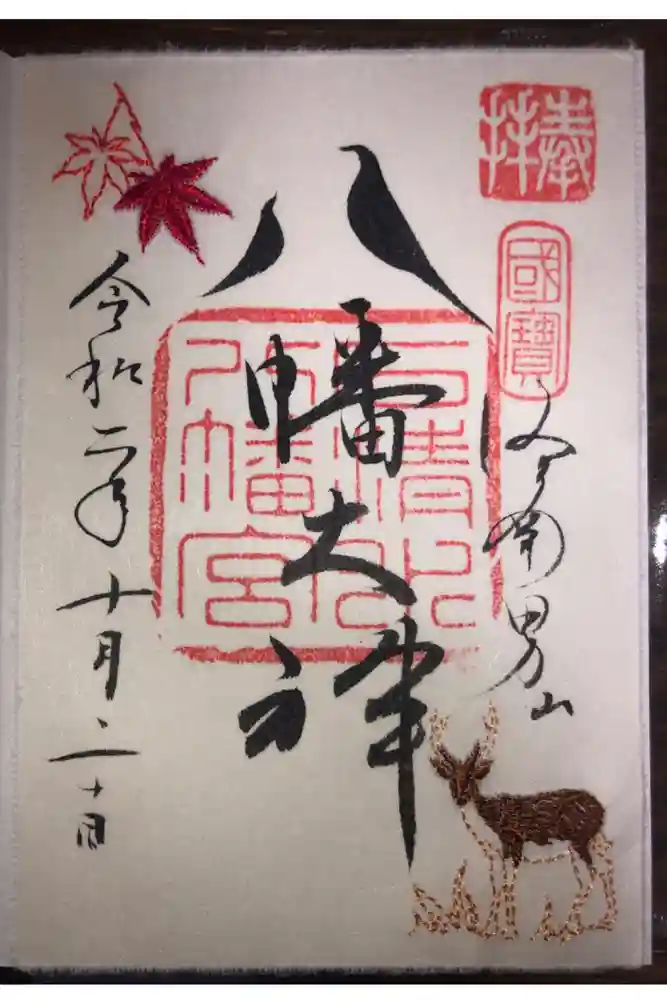 奉拝
國寶
洛南男山
八幡大神
石清水
八幡宮
令和二年十月二十日